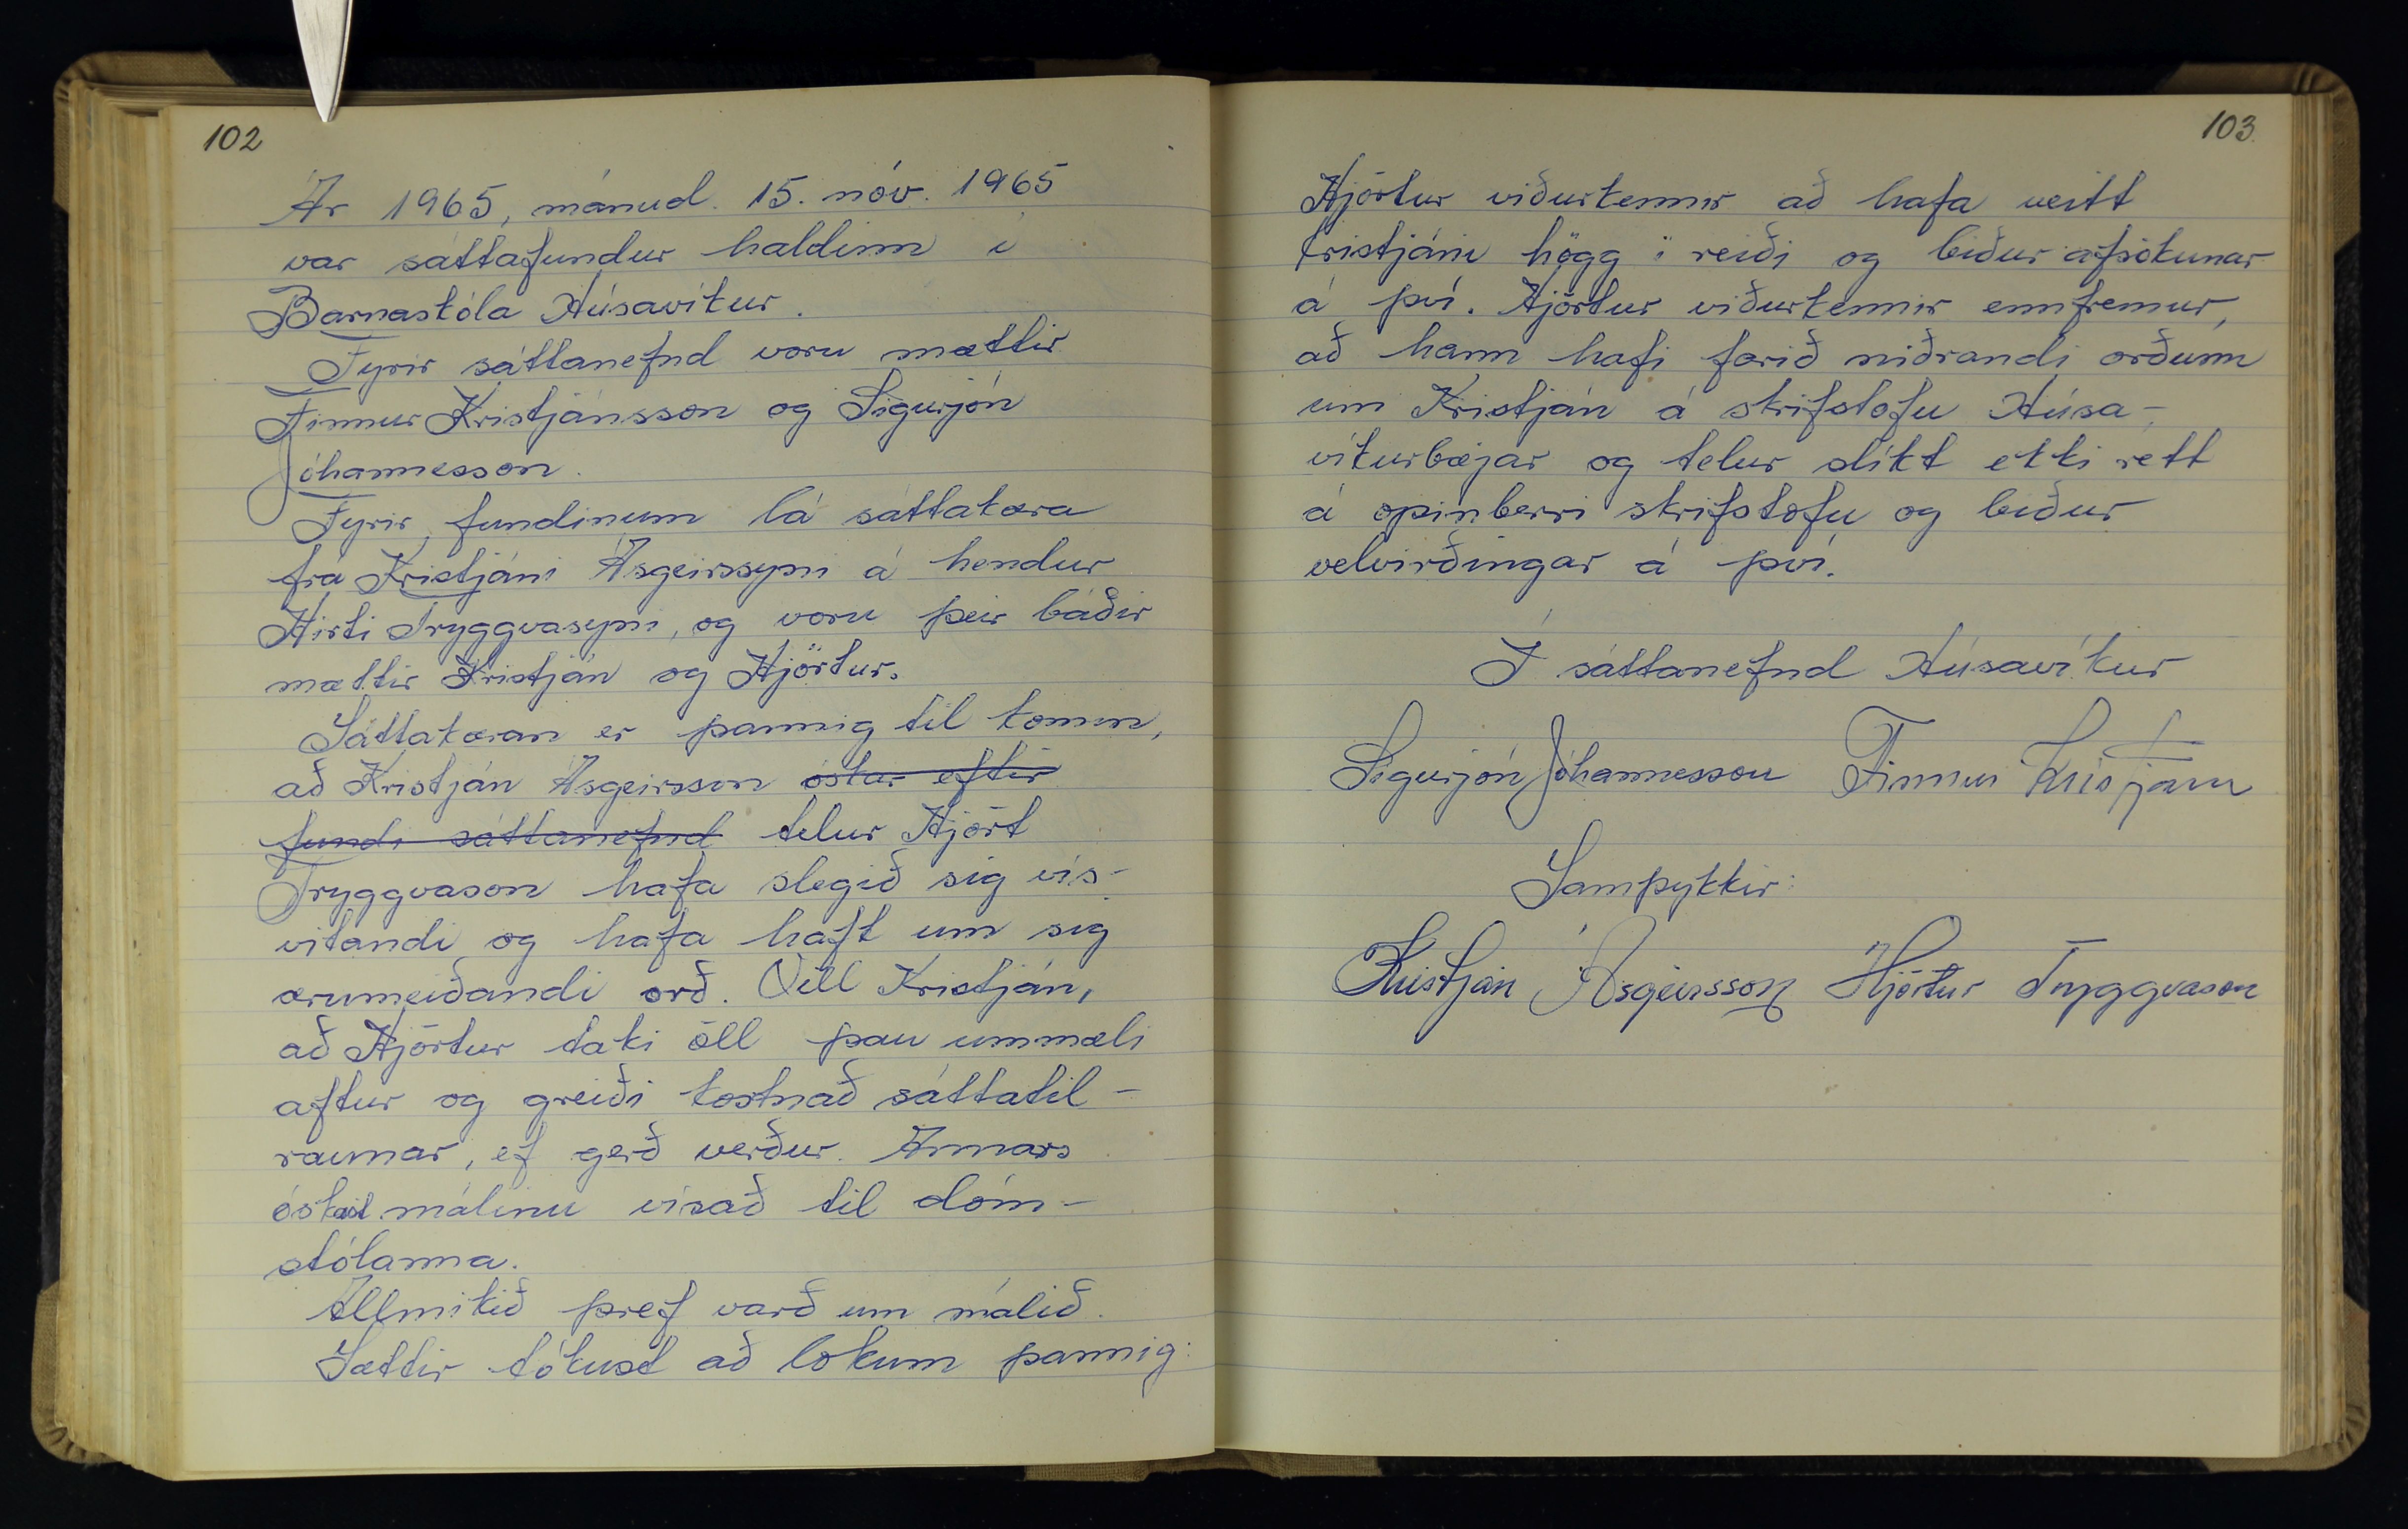 102
Ár 1965, mánud. 15. nóv. 1965
var sáttafundur haldinn í
Barnaskóla Húsavíkur.
Fyrir sáttanefnd voru mættir
Finnur Kristjánsson og Sigurjón
Jóhannesson.
Fyrir fundinum lá sáttakæra
frá Kristjáni Ásgeirssyni á hendur
Hirti Tryggvasyni, og voru þeir báðir
mættir Kristján og Hjörtur.
Sáttakæran er þannig til komin,
að Kristján Ásgeirsson óskar eftir
fundi sáttanefnd telur Hjört
Tryggvason hafa slegið sig vís-
vitandi og hafa haft um sig
ærumeiðandi orð. Vill Kristján,
að Hjörtur taki öll þau ummæli
aftur og greiði kostnað sáttatil-
raunar, ef gerð verður. Annars
óskast málinu vísað til dóm-
stólanna.
Allmikið þref varð um málið.
Sættir tókust að lokum þannig:
103
Hjörtur viðurkennir að hafa veitt
Kristjáni högg í reiði og biður afsökunar
á því. Hjörtur viðurkennir ennfremur,
að hann hafi farið niðrandi orðum
um Kristján á skrifstofu Húsa-
víkurbæjar og telur slíkt ekki rétt
á opinberri skrifstofu og biður
velvirðingar á því.
Í sáttanefnd Húsavíkur
Sigurjón Jóhannesson Finnur Kristjáns
Samþykkir:
Kristján Ásgeirsson Hjörtur Tryggvason